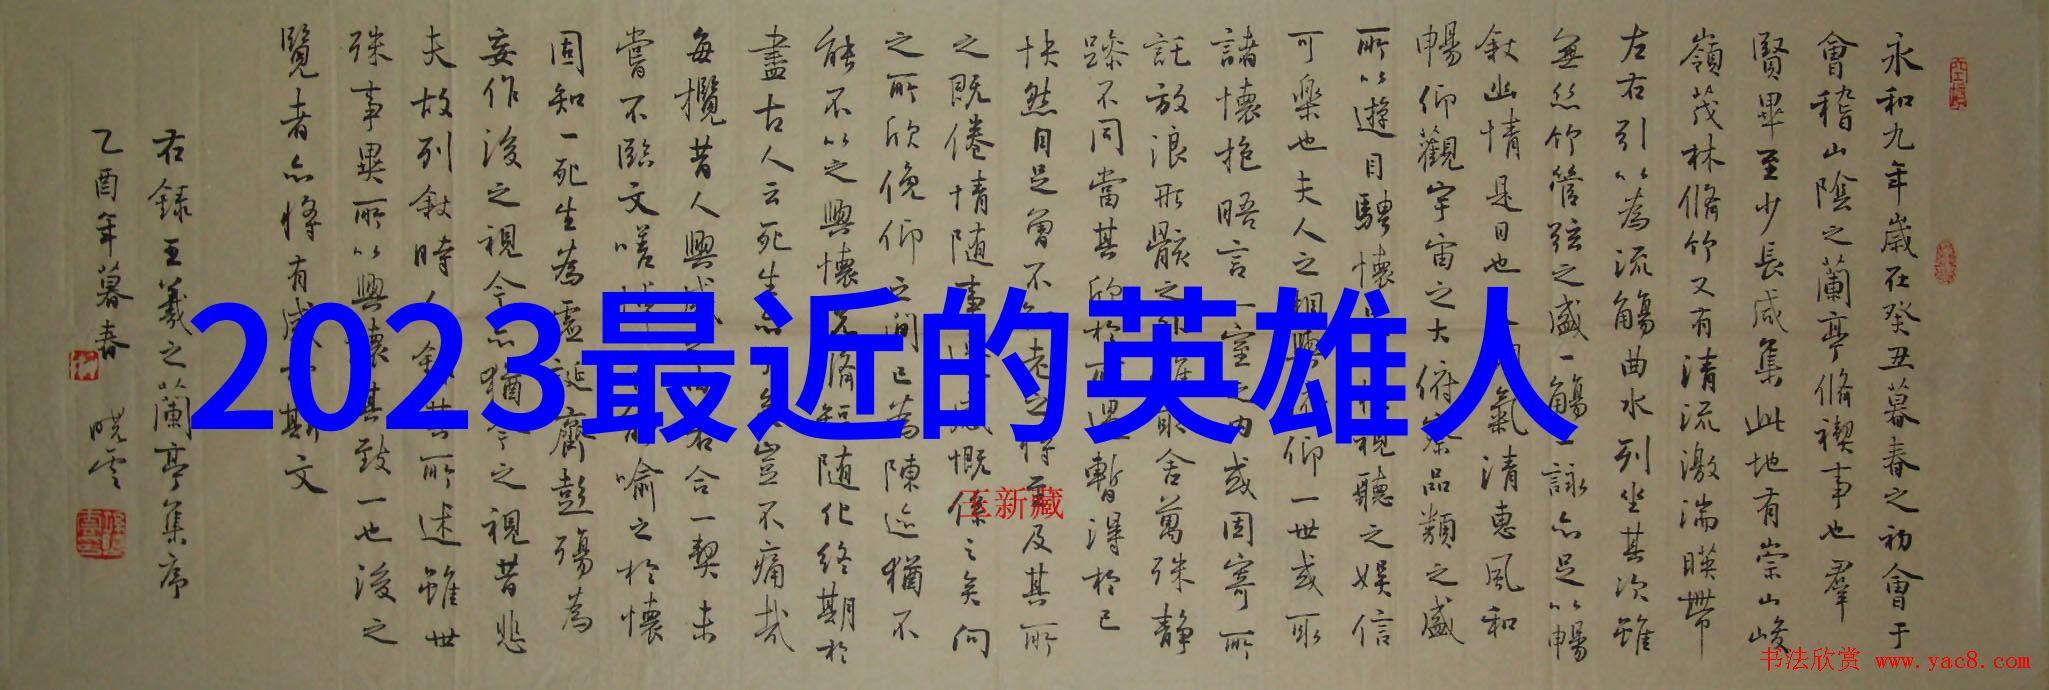 永和九年歲在癸丑暮春之初會于
會稽山陰之蘭亭脩禊事也羣
賢畢至少長咸集此地有崇山峻
嶺茂林脩竹又有清流激湍暎帶
左右引以為流觴曲水列坐其次雖
無絲竹管弦之盛一觴一詠亦足以暢
敘幽情是日也 氣清惠風和
暢仰觀宇宙之大俯察品類之盛
所以遊目騁懷 視聽之娛信
可樂也夫人之相與 仰一世或取
諸懷抱晤言一室之内或因寄所
託放浪形骸之 舍萬殊静
躁不同當其欣於 暫得於己
快然自足曾不 老之將至及其所
之既倦情随事 慨係之矣向
之所欣俛仰之間已為陳迹猶不
能不以之興懷 脩短随化終期於
盡古人云死生亦 豈不痛哉
每攬昔人興感之 若合一契未
嘗不臨文嗟悼 喻之於懷
固知一死生為虛誕齊彭殤為
妄作後之視今亦猶今之視昔悲
夫故列敘時人 所述雖世
殊事異所以興懷其致一也後之
覽者亦將有感 斯文
右錄王羲之蘭亭集序
乙酉年暮春 曉雲
2023最近的英雄人
王新藏
书法欣赏 www.yac8.com